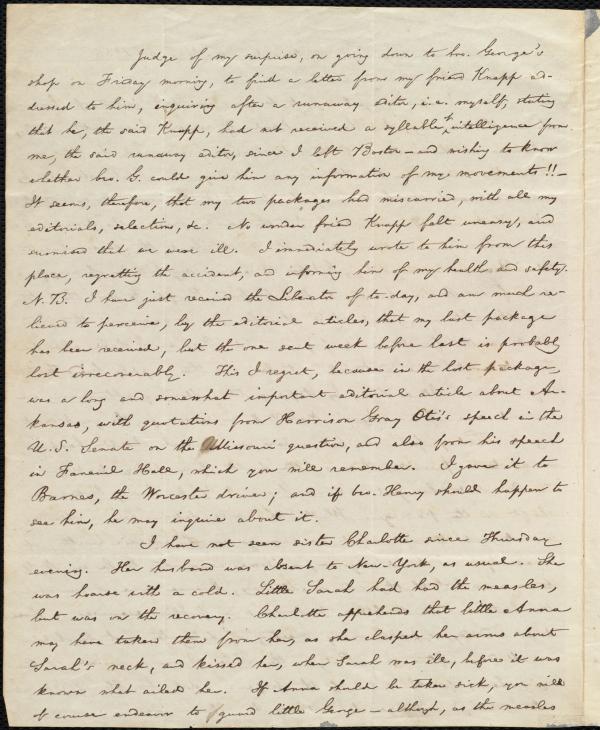 Judge of my surprise, on going down to bro. George's
shop on Friday morning, to find a letter from my friend Knapp ad-
dressed to him, inquiring after a runaway editor, i.e. myself, stating
that he, the said Knapp, had not received a syllable of intelligence from
me, the said runaway editor, since I left Boston—and wishing to know
whether bro. G. could give him any information of my movements!!—
It seems, therefore, that my two packages had miscarried, with all my
editorials, selections, &c. No wonder friend Knapp felt uneasy, and
surmised that we were ill. I immediately wrote to him from this
place, regretting the accident, and informing him of my health and safety.
N. B. I have just received the Liberator of to-day, and am much re-
lieved to perceive, by the editorial articles, that my last package
has been received, but the one sent week before last is probably
lost irrecoverably. This I regret, because in the lost package
was a long and somewhat important editorial article about Ar-
kansas, with quotations from Harrison Gray Otis's speech in the
U. S. Senate on the Missouri question, and also from his speech
in Faneuil Hall, which you will remember. I gave it to
Barnes, the Worcester driver; and if bro. Henry should happen to
see him, he may inquire about it.
I have not seen sister Charlotte since Thursday
evening. Her husband was absent to New-York, as usual. She
was hoarse with a cold. Little Sarah had had the measles,
but was on the recovery. Charlotte apprehends that little Anna
may have taken them from her, as she clasped her arms about
Sarah's neck, and kissed her, when Sarah was ill, before it was
known what ailed her. If Anna should be taken sick, you will
of course endeavor to guard little George—although, as the measles